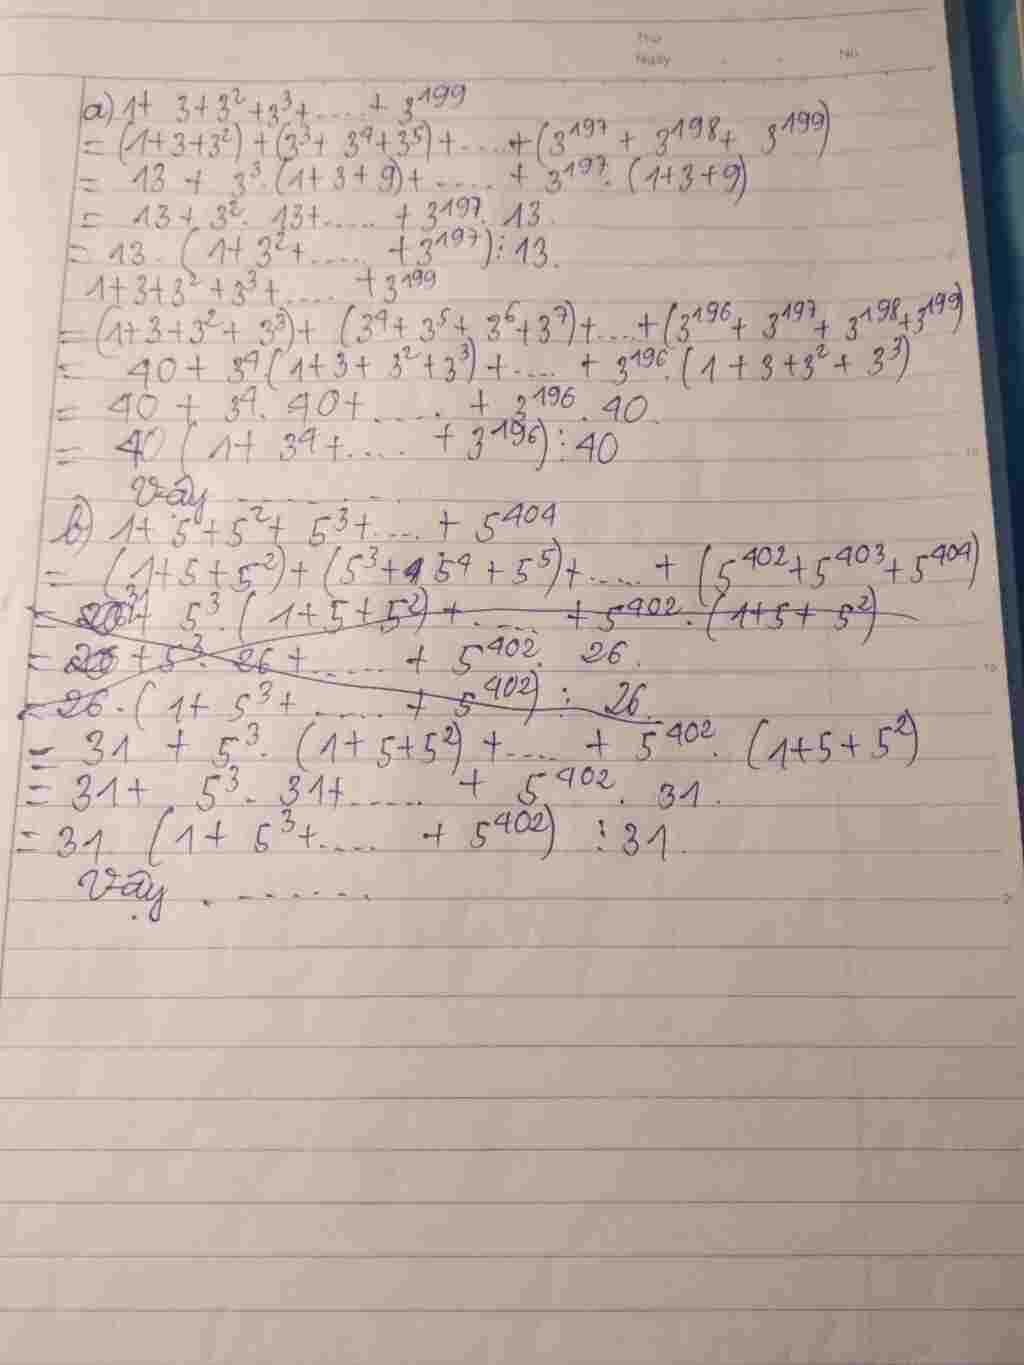 No
Ngày
No
a) 1+ 3+3²+3³+.....+ 3¹⁹⁹
= (1+3+3²) +(3³+ 3⁴+3⁵)+.....+(3¹⁹⁷ + 3¹⁹⁸+ 3¹⁹⁹)
= 13 + 3³.(1+3+9)+..... + 3¹⁹⁷.(1+3+9)
= 13+ 3². 13+..... +3¹⁹⁷. 13.
= 13. (1+3²+..... +3¹⁹⁷)⋮13.
1+3+3²+3³+..... +3¹⁹⁹
= (1+3+3²+ 3³)+ (3⁴+3⁵+ 3⁶+3⁷)+...+(3¹⁹⁶+ 3¹⁹⁷+ 3¹⁹⁸+3¹⁹⁹)
= 40+ 3⁴(1+3+ 3²+3³)+.... + 3¹⁹⁶.(1+3+3²+ 3³)
= 40 + 3⁴. 40+..... + 3¹⁹⁶. 40.
= 40 (1+ 3⁴+.... +3¹⁹⁶)⋮40
10
Vậy .........
b) 1+ 5+5²+ 5³+....+ 5⁴⁰⁴
= (1+5+5²)+(5³+ 5⁴+5⁵)+.....+ (5⁴⁰²+5⁴⁰³+5⁴⁰⁴)
= + 5³.(1+5+5²)+..... +5⁴⁰².(1+5+ 5²)
= 26 +5³. 26+..... + 5⁴⁰². 26.
= 26.(1+ 5³+..... + 5⁴⁰²) ⋮ 26.
= 31 + 5³. (1+5+5²) +.... + 5⁴⁰². (1+5+ 5²)
= 31+ 5³. 31+..... + 5⁴⁰². 31.
= 31. (1+ 5³+.... + 5⁴⁰²) ⋮31.
Vậy .........